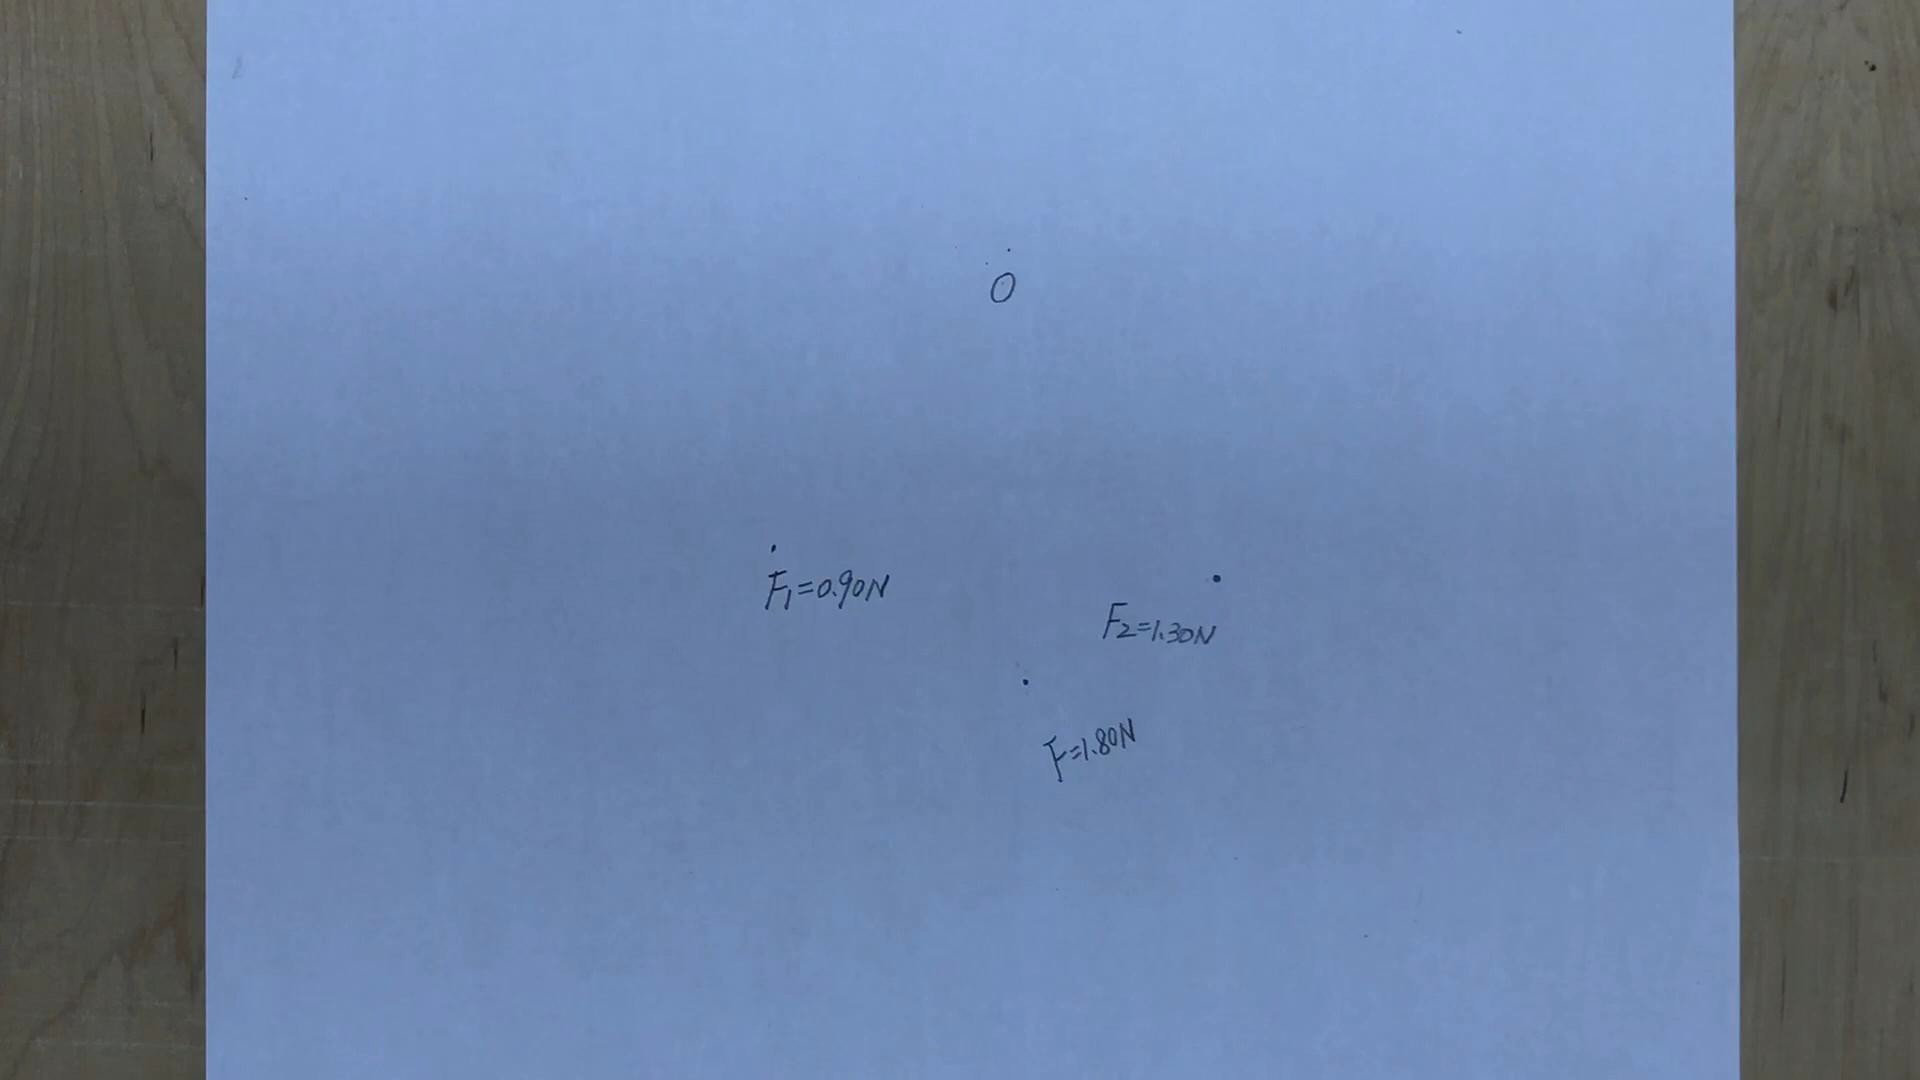 O
F₁=0.90N
F₂=1.30N
F=1.80N